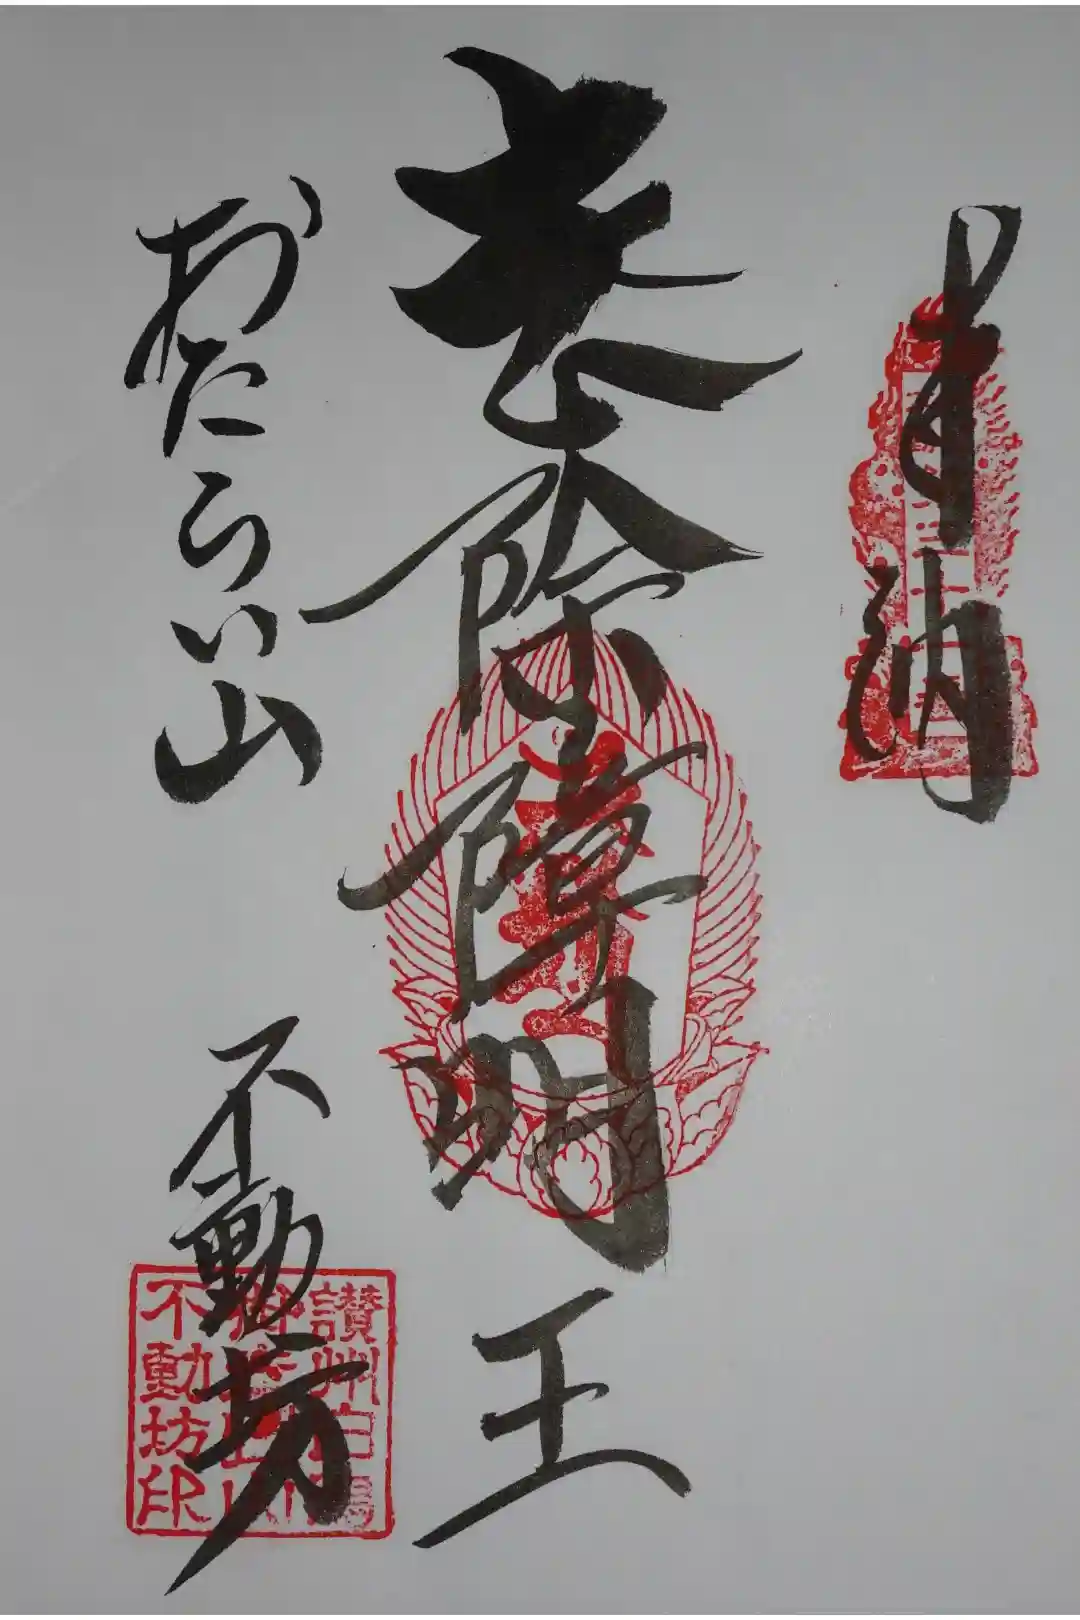 奉納
除障明王
おたらい山 不動坊
讃州白鳥
不動坊印